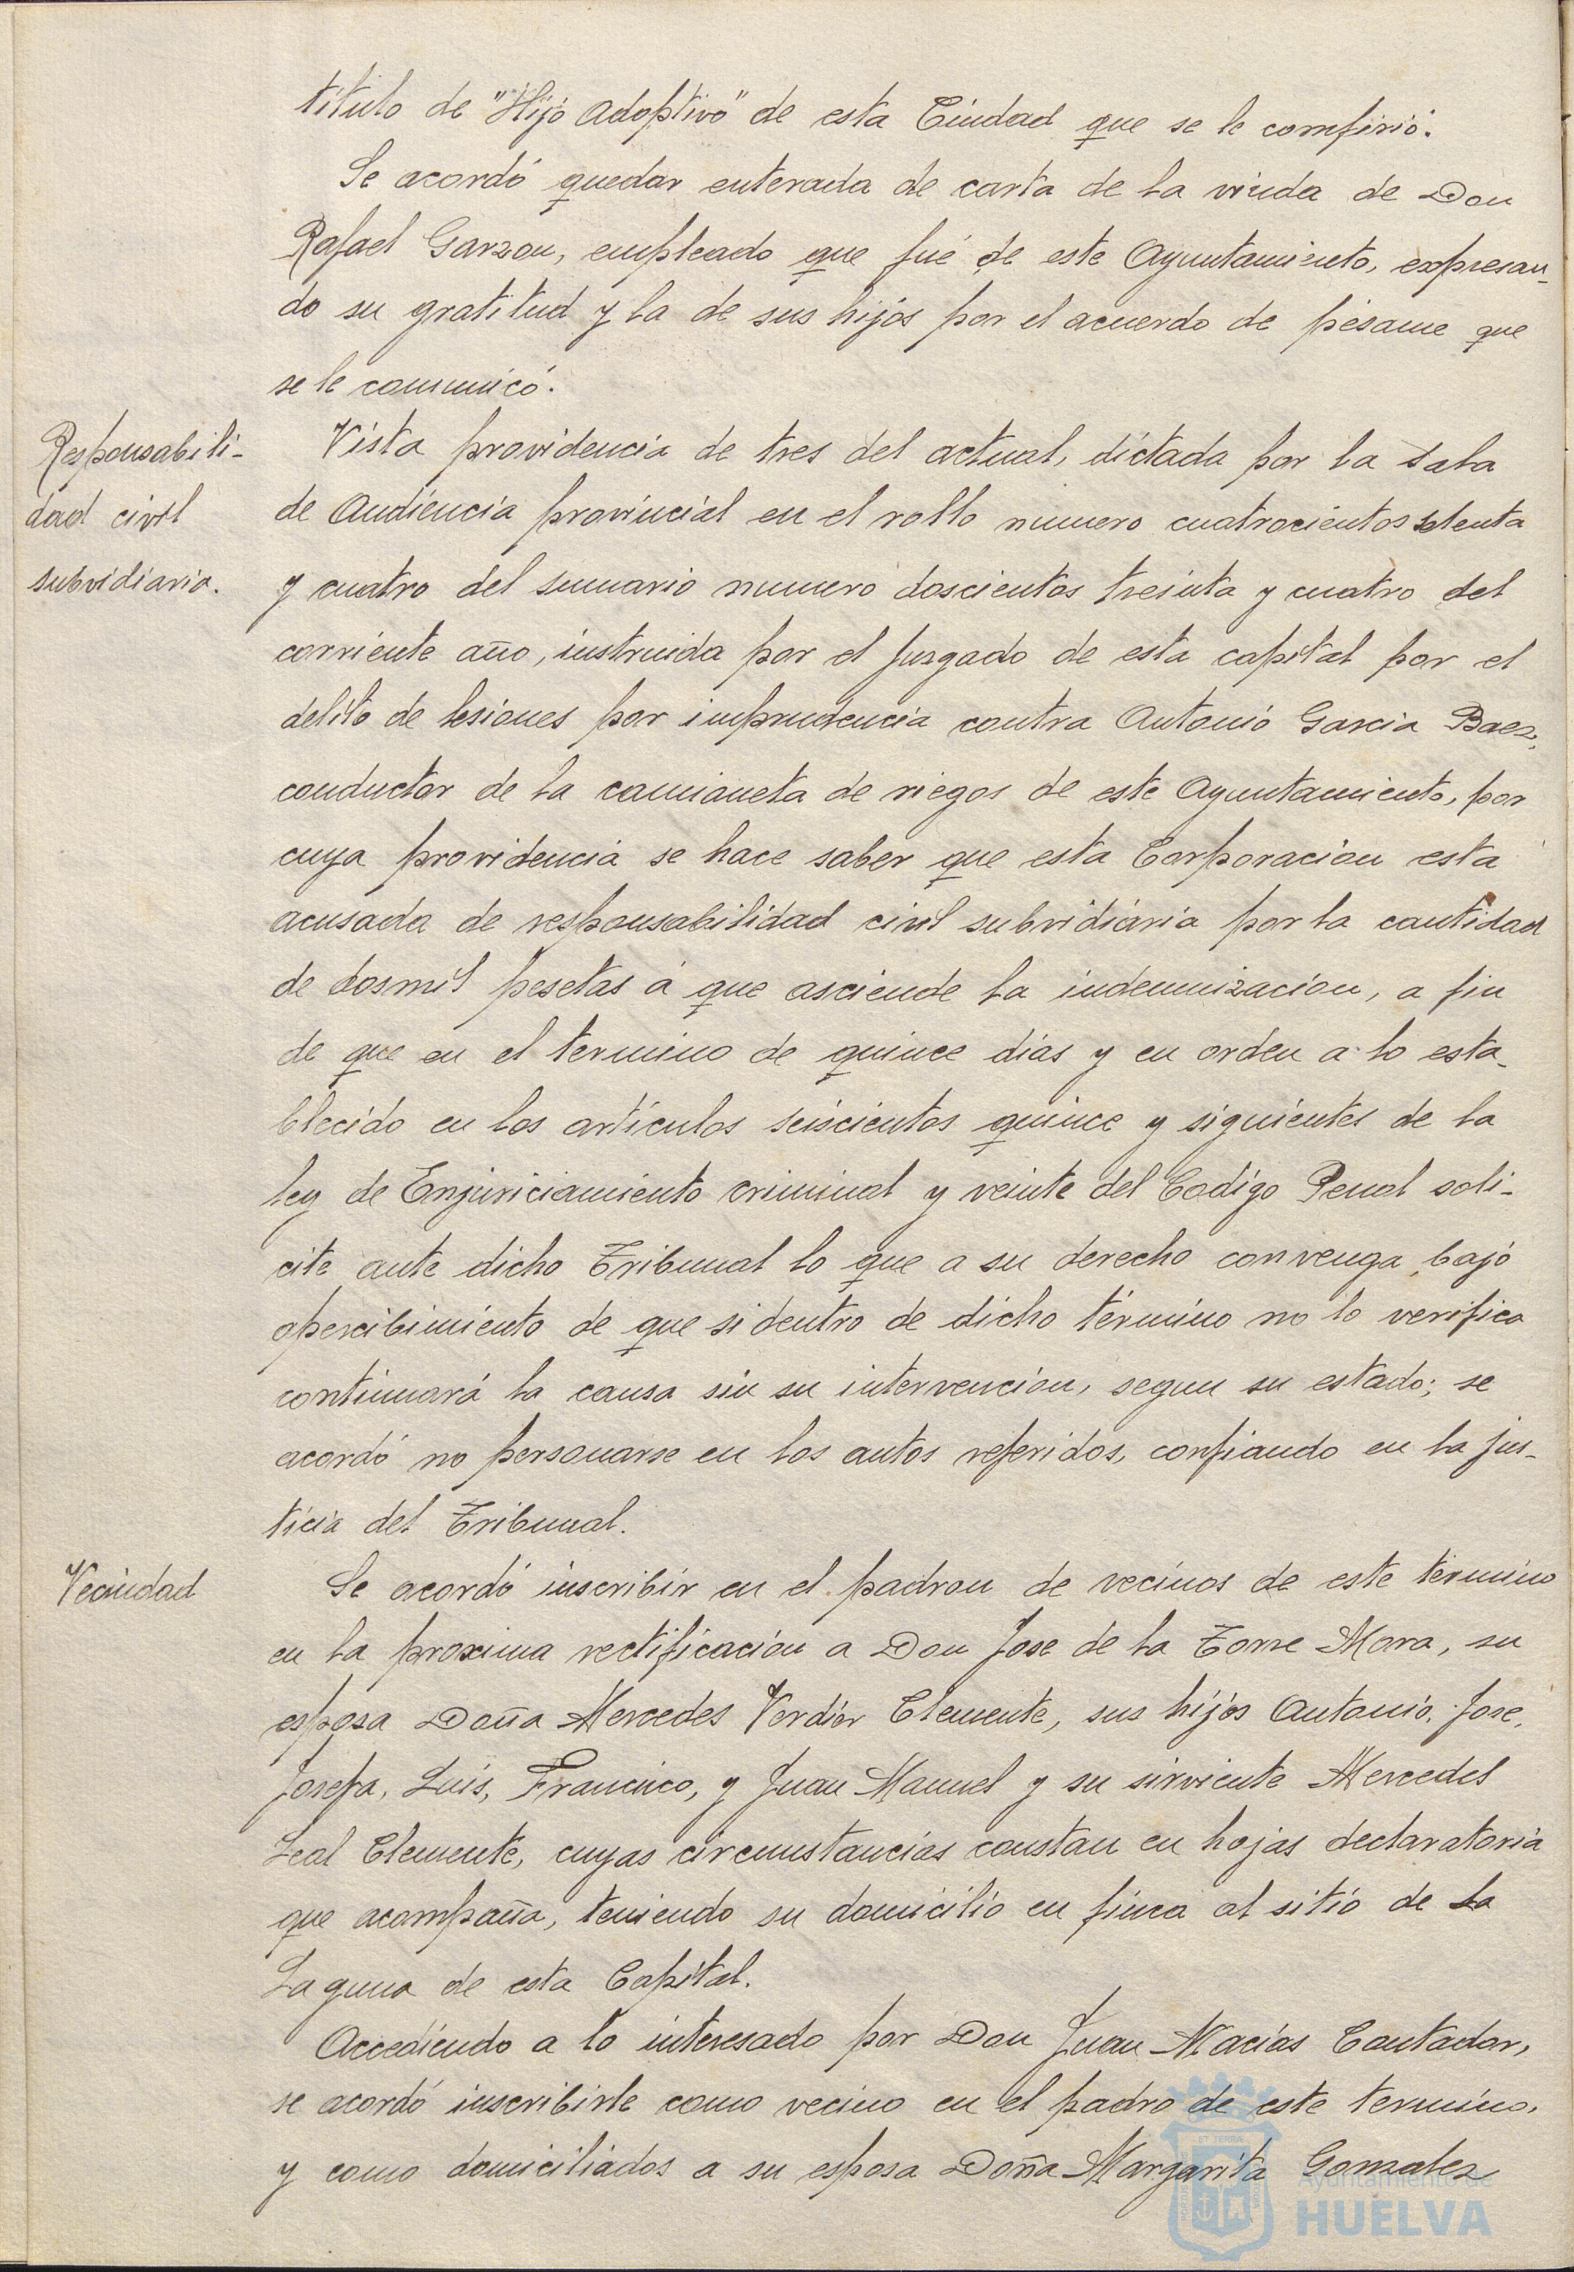 título de "Hijo Adoptivo" de esta Ciudad que se le comfirió.
Se acordó quedar enterada de carta de la viuda de Don
Rafael Garzon, empleado que fué de este Ayuntamiento, expresan-
do su gratitud y la de sus hijos por el acuerdo de pésame que
se le comunicó.
Responsabili-
dad civil
subsidiaria.
Vista providencia de tres del actual, dictada por la Sala
de Audiencia provincial en el rollo numero cuatrocientos setenta
y cuatro del sumario numero doscientos treinta y cuatro del
corriente año, instruida por el Juzgado de esta capital por el
delito de lesiones por imprudencia contra Antonio Garcia Baez,
conductor de la camioneta de riegos de este Ayuntamiento, por
cuya providencia se hace saber que esta Corporacion esta
acusada de responsabilidad civil subsidiaria por la cantidad
de dosmil pesetas á que asciende la indemnizacion, a fin
de que en el termino de quince dias y en orden a lo esta-
blecido en los artículos seiscientos quince y siguientes de la
ley de Enjuriciamiento criminal y veinte del Codigo Penal soli-
cite ante dicho Tribunal lo que a su derecho convenga bajo
apercibimiento de que si dentro de dicho término no lo verifica
continuará la causa sin su intervencion, segun su estado; se
acordó no personarse en los autos referidos, confiando en la jus-
ticia del Tribunal.
Vecindad
Se acordó inscribir en el padron de vecinos de este término
en la proxima rectificacion a Don Jose de la Torre Mora, su
esposa Doña Mercedes Verdier Clemente, sus hijos Antonio, Jose,
Josefa, Luis, Francisco, y Juan Manuel y su sirviente Mercedes
Leal Clemente, cuyas circunstancias constan en hojas declaratoria
que acompaña, teniendo su domicilio en finca al sitio de La
Laguna de esta Capital.
Accediendo a lo interesado por Don Juan Macías Contador,
se acordó inscribirle como vecino en el padro de este termino,
y como domiciliados a su esposa Doña Margarita Gonzalez
Ayuntamiento de
HUELVA